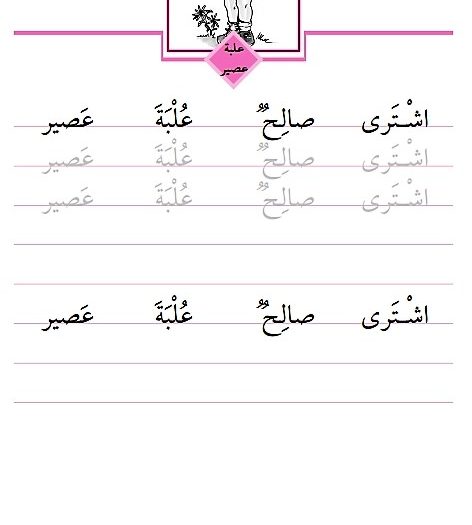 علبة
عصير
اشْتَرى صالِحٌ عُلْبَةَ عَصير
اشْتَرى صالِحٌ عُلْبَةَ عَصير
اشْتَرى صالِحٌ عُلْبَةَ عَصير
اشْتَرى صالِحٌ عُلْبَةَ عَصير